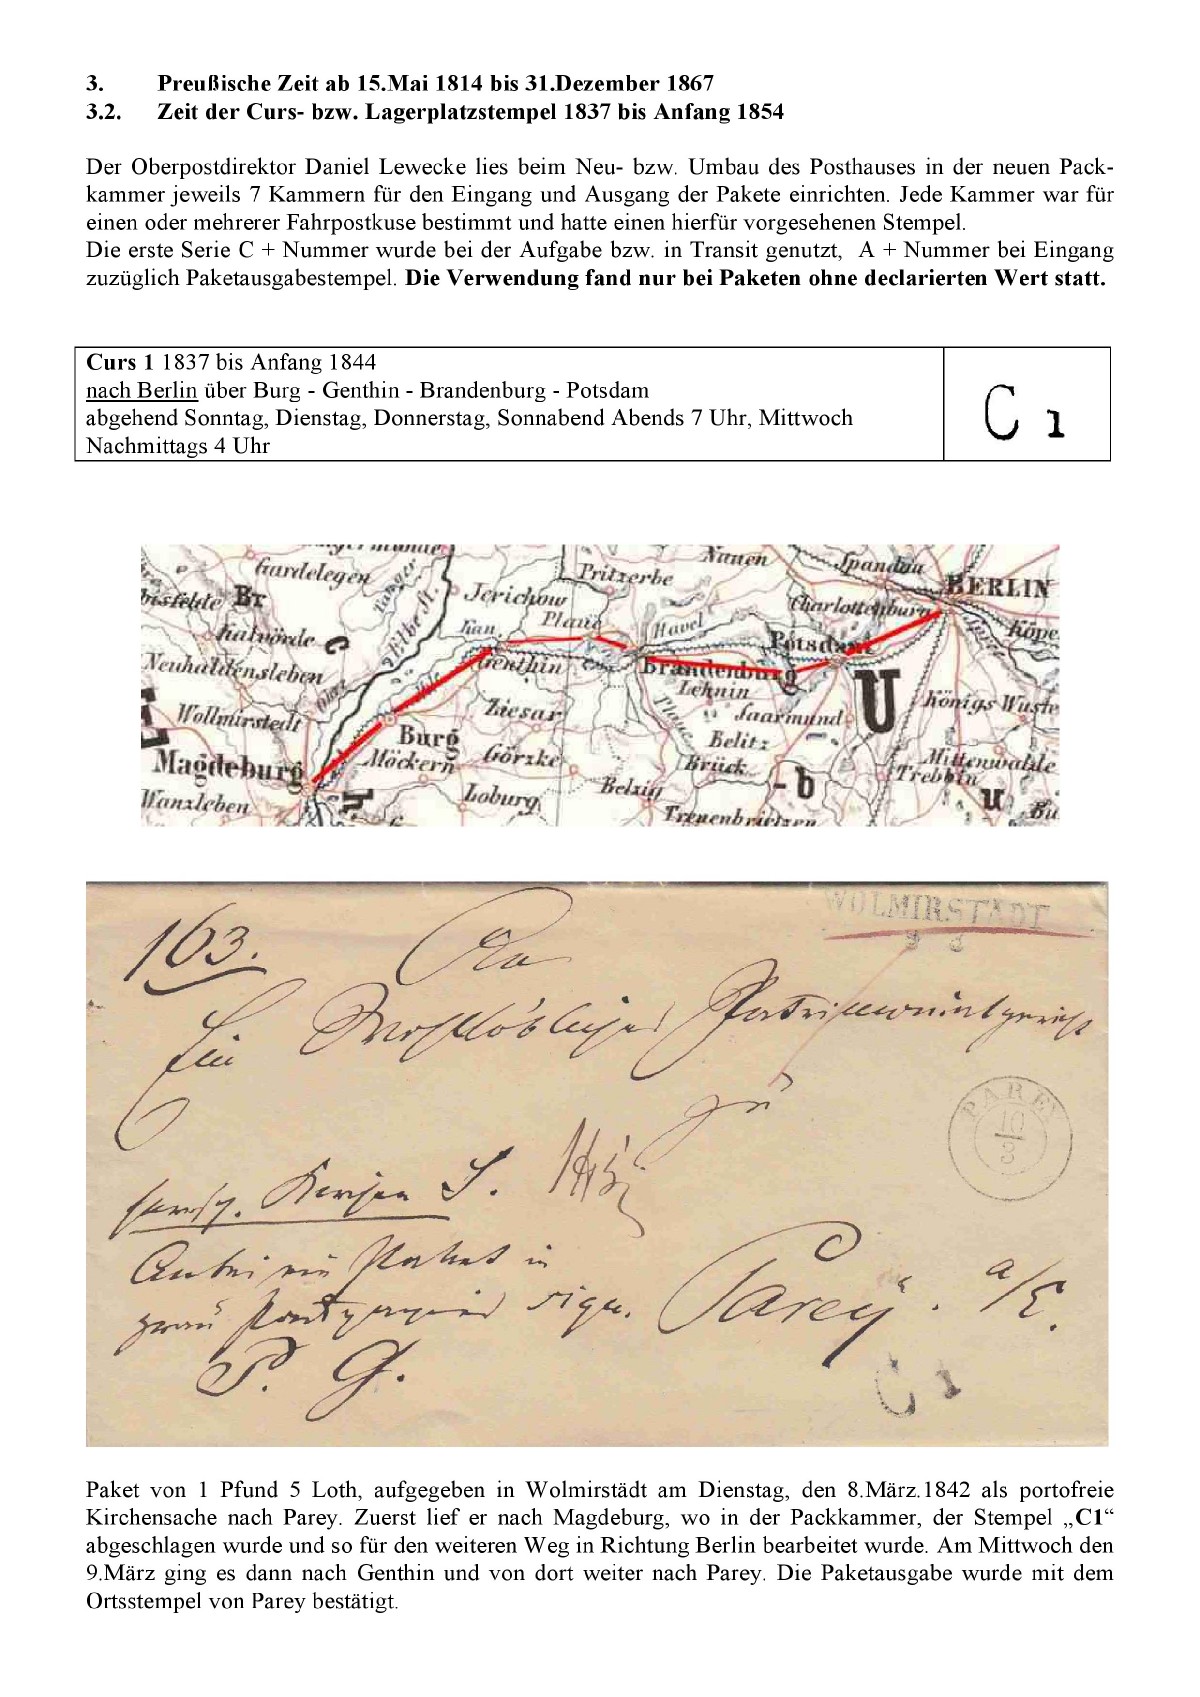 3. Preußische Zeit ab 15.Mai 1814 bis 31.Dezember 1867
3.2. Zeit der Curs- bzw. Lagerplatzstempel 1837 bis Anfang 1854
Der Oberpostdirektor Daniel Lewecke lies beim Neu- bzw. Umbau des Posthauses in der neuen Pack-
kammer jeweils 7 Kammern für den Eingang und Ausgang der Pakete einrichten. Jede Kammer war für
einen oder mehrerer Fahrpostkuse bestimmt und hatte einen hierfür vorgesehenen Stempel.
Die erste Serie C + Nummer wurde bei der Aufgabe bzw. in Transit genutzt, A + Nummer bei Eingang
zuzüglich Paketausgabestempel. Die Verwendung fand nur bei Paketen ohne declarierten Wert statt.
Curs 1 1837 bis Anfang 1844
nach Berlin über Burg - Genthin - Brandenburg - Potsdam
abgehend Sonntag, Dienstag, Donnerstag, Sonnabend Abends 7 Uhr, Mittwoch
Nachmittags 4 Uhr
C 1
Nauen
Spandau
Gardelegen
Pritzerbe
BERLIN
Jerichow
Charlottenburg
Plaue
Havel
Köpe
Kalvörde
Potsdam
Neuhaldensleben
Genthin
Brandenburg
Lehnin
Ziesar
Königs Wuste
Wollmirstedt
Saarmund
U
Burg
Belitz
Magdeburg
Möckern
Görzke
Brück
Mittenwalde
Trebbin
Wanzleben
Loburg
Belzig
Treuenbrietzen
- b
u
Bu
163.
WOLMIRSTÄDT
An
Ein Wohllöbliches Patrimonialgericht
zu
PAREY
10
3
Anbei ein Packet in
sign.
Parey. a/E.
P. G.
C 1
Paket von 1 Pfund 5 Loth, aufgegeben in Wolmirstädt am Dienstag, den 8.März.1842 als portofreie
Kirchensache nach Parey. Zuerst lief er nach Magdeburg, wo in der Packkammer, der Stempel „C1“
abgeschlagen wurde und so für den weiteren Weg in Richtung Berlin bearbeitet wurde. Am Mittwoch den
9.März ging es dann nach Genthin und von dort weiter nach Parey. Die Paketausgabe wurde mit dem
Ortsstempel von Parey bestätigt.